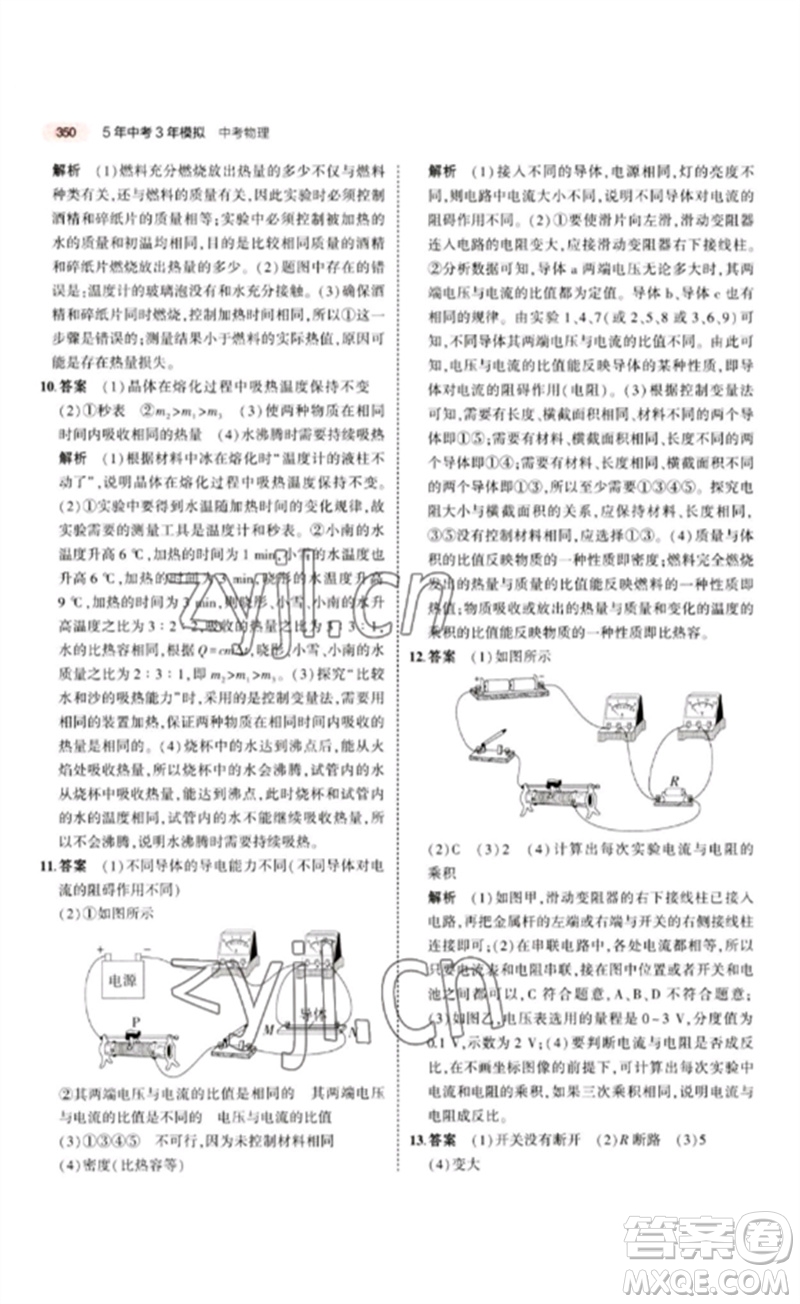 360 5年中考3年模拟 中考物理
解析 (1)燃料充分燃烧放出热量的多少不仅与燃料
种类有关,还与燃料的质量有关,因此实验时必须控制
酒精和碎纸片的质量相等;实验中必须控制被加热的
水的质量和初温均相同,目的是比较相同质量的酒精
和碎纸片放出热量的多少。(2)题图中存在的错
误是:温度计的玻璃泡没有和水充分接触。(3)确保酒
精和碎纸片同时燃烧,控制同时停止燃烧,所以①这一
步骤是错误的;测量结果小于燃料的实际热值,原因可
能是存在热量损失。
10.答案 (1)晶体在熔化过程中吸热温度保持不变
(2)①秒表 ②m₂>m₁>m₃ (3)使两种物质在相同
时间内吸收相同的热量 (4)水沸腾时需要持续吸热
解析 (1)根据材料中冰在熔化时“温度计的液柱不
动了”,说明晶体在熔化过程中吸热温度保持不变。
(2)①实验中要得到水温随加热时间的变化规律,故
实验需要的测量工具是温度计和秒表。②小南的水
温度升高6 ℃,加热的时间为1 min,小雪的水
温度升高6 ℃,加热的时间为
9 ℃,加热的时间为3 min,则晓彤、小雪、小南的水升
高温度之比为3∶2∶2,吸收的热量之比为3∶3∶1,
水的比热容相同,根据Q=cmΔt,晓彤、小雪、小南的水
质量之比为
,即m₂>m₁>m₃。(3)探究“比较
水和沙的吸热能力”时,采用的是控制变量法,使用相
同的装置加热,保证两种物质在相同时间内吸收的
热量是相同的。(4)烧杯中的水达到沸点后,能从火
焰处吸收热量,所以烧杯中的水会沸腾,试管内的水
从烧杯中吸热,也能达到沸点,此时烧杯和试管中的水
温度相同,试管内的水不能继续吸收热量,所以试管
内水不会沸腾,说明水沸腾时需要持续吸热。
11.答案 (1)不同导体的导电能力不同(不同导体对电
流的阻碍作用不同)
(2)①如图所示
+ −
电源
P
导体
M N
②其两端电压与电流的比值是相同的 其两端电压
与电流的比值是不同的 电压与电流的比值
(3)①③④⑤ 不可行,因为未控制材料相同
(4)密度(比热容等)
解析 (1)接入不同的导体,电源相同,灯的亮度不
同,则电路中电流大小不同,说明不同导体对电流的
阻碍作用不同。(2)①要使滑片向左滑,滑动变阻器
连入电路的电阻变大,应接滑动变阻器右下接线柱。
②分析数据可知,导体a两端电压无论多大,其两
端电压与电流的比值都为定值。导体b、导体c也有
相同的规律。由实验1、4、7(或2、5、8或3、6、9)可
知,不同导体两端电压与电流的比值是不同的,即
电压与电流的比值能反映导体的某种性质,即导
体对电流的阻碍作用(电阻)。(3)根据控制变量法可
知,需要有长度、横截面积相同、材料不同的两个导
体即①⑤;需要有材料、横截面积相同、长度不同的
两个导体即①④;需要有材料、长度相同、横截面积不同的
两个导体即①③,所以至少需要5种规格。探究电
阻大小与横截面积的关系,应保持材料、长度相同,
③⑤没有控制材料相同,应选择①③。(4)质量与体
积的比值反映物质的一种性质即密度;燃料完全燃烧
放出的热量与质量的比值能反映燃料的一种性质即热
值;物质吸收或放出的热量与质量和变化的温度的
乘积的比值能反映物质的一种性质即比热容。
12.答案 (1)如图所示
R
(2)C (3)2 (4)计算出每次实验电流与电阻的
乘积
解析 (1)如图甲,滑动变阻器的右下接线柱已接入
电路,再把金属杆的左端或右端与开关的右侧接线柱
连接;(2)在串联电路中,各处电流都相等,所以
只要电流表和电阻串联,接在图中位置或者开关和电
池之间都可以,C符合题意。
(3)如图乙,电压表选用的量程是0~3 V,分度值为
0.1 V,示数为2 V;(4)要判断电流与电阻是否成反
比,在不画坐标图像的前提下,可计算出每次实验中
电流和电阻的乘积,如果三次乘积相同,说明电流与
电阻成反比。
13.答案 (1)开关没有断开 (2)R断路 (3)5
(4)变大
zyjl.cn
zyjl.cn
答案圈
MXQE.COM